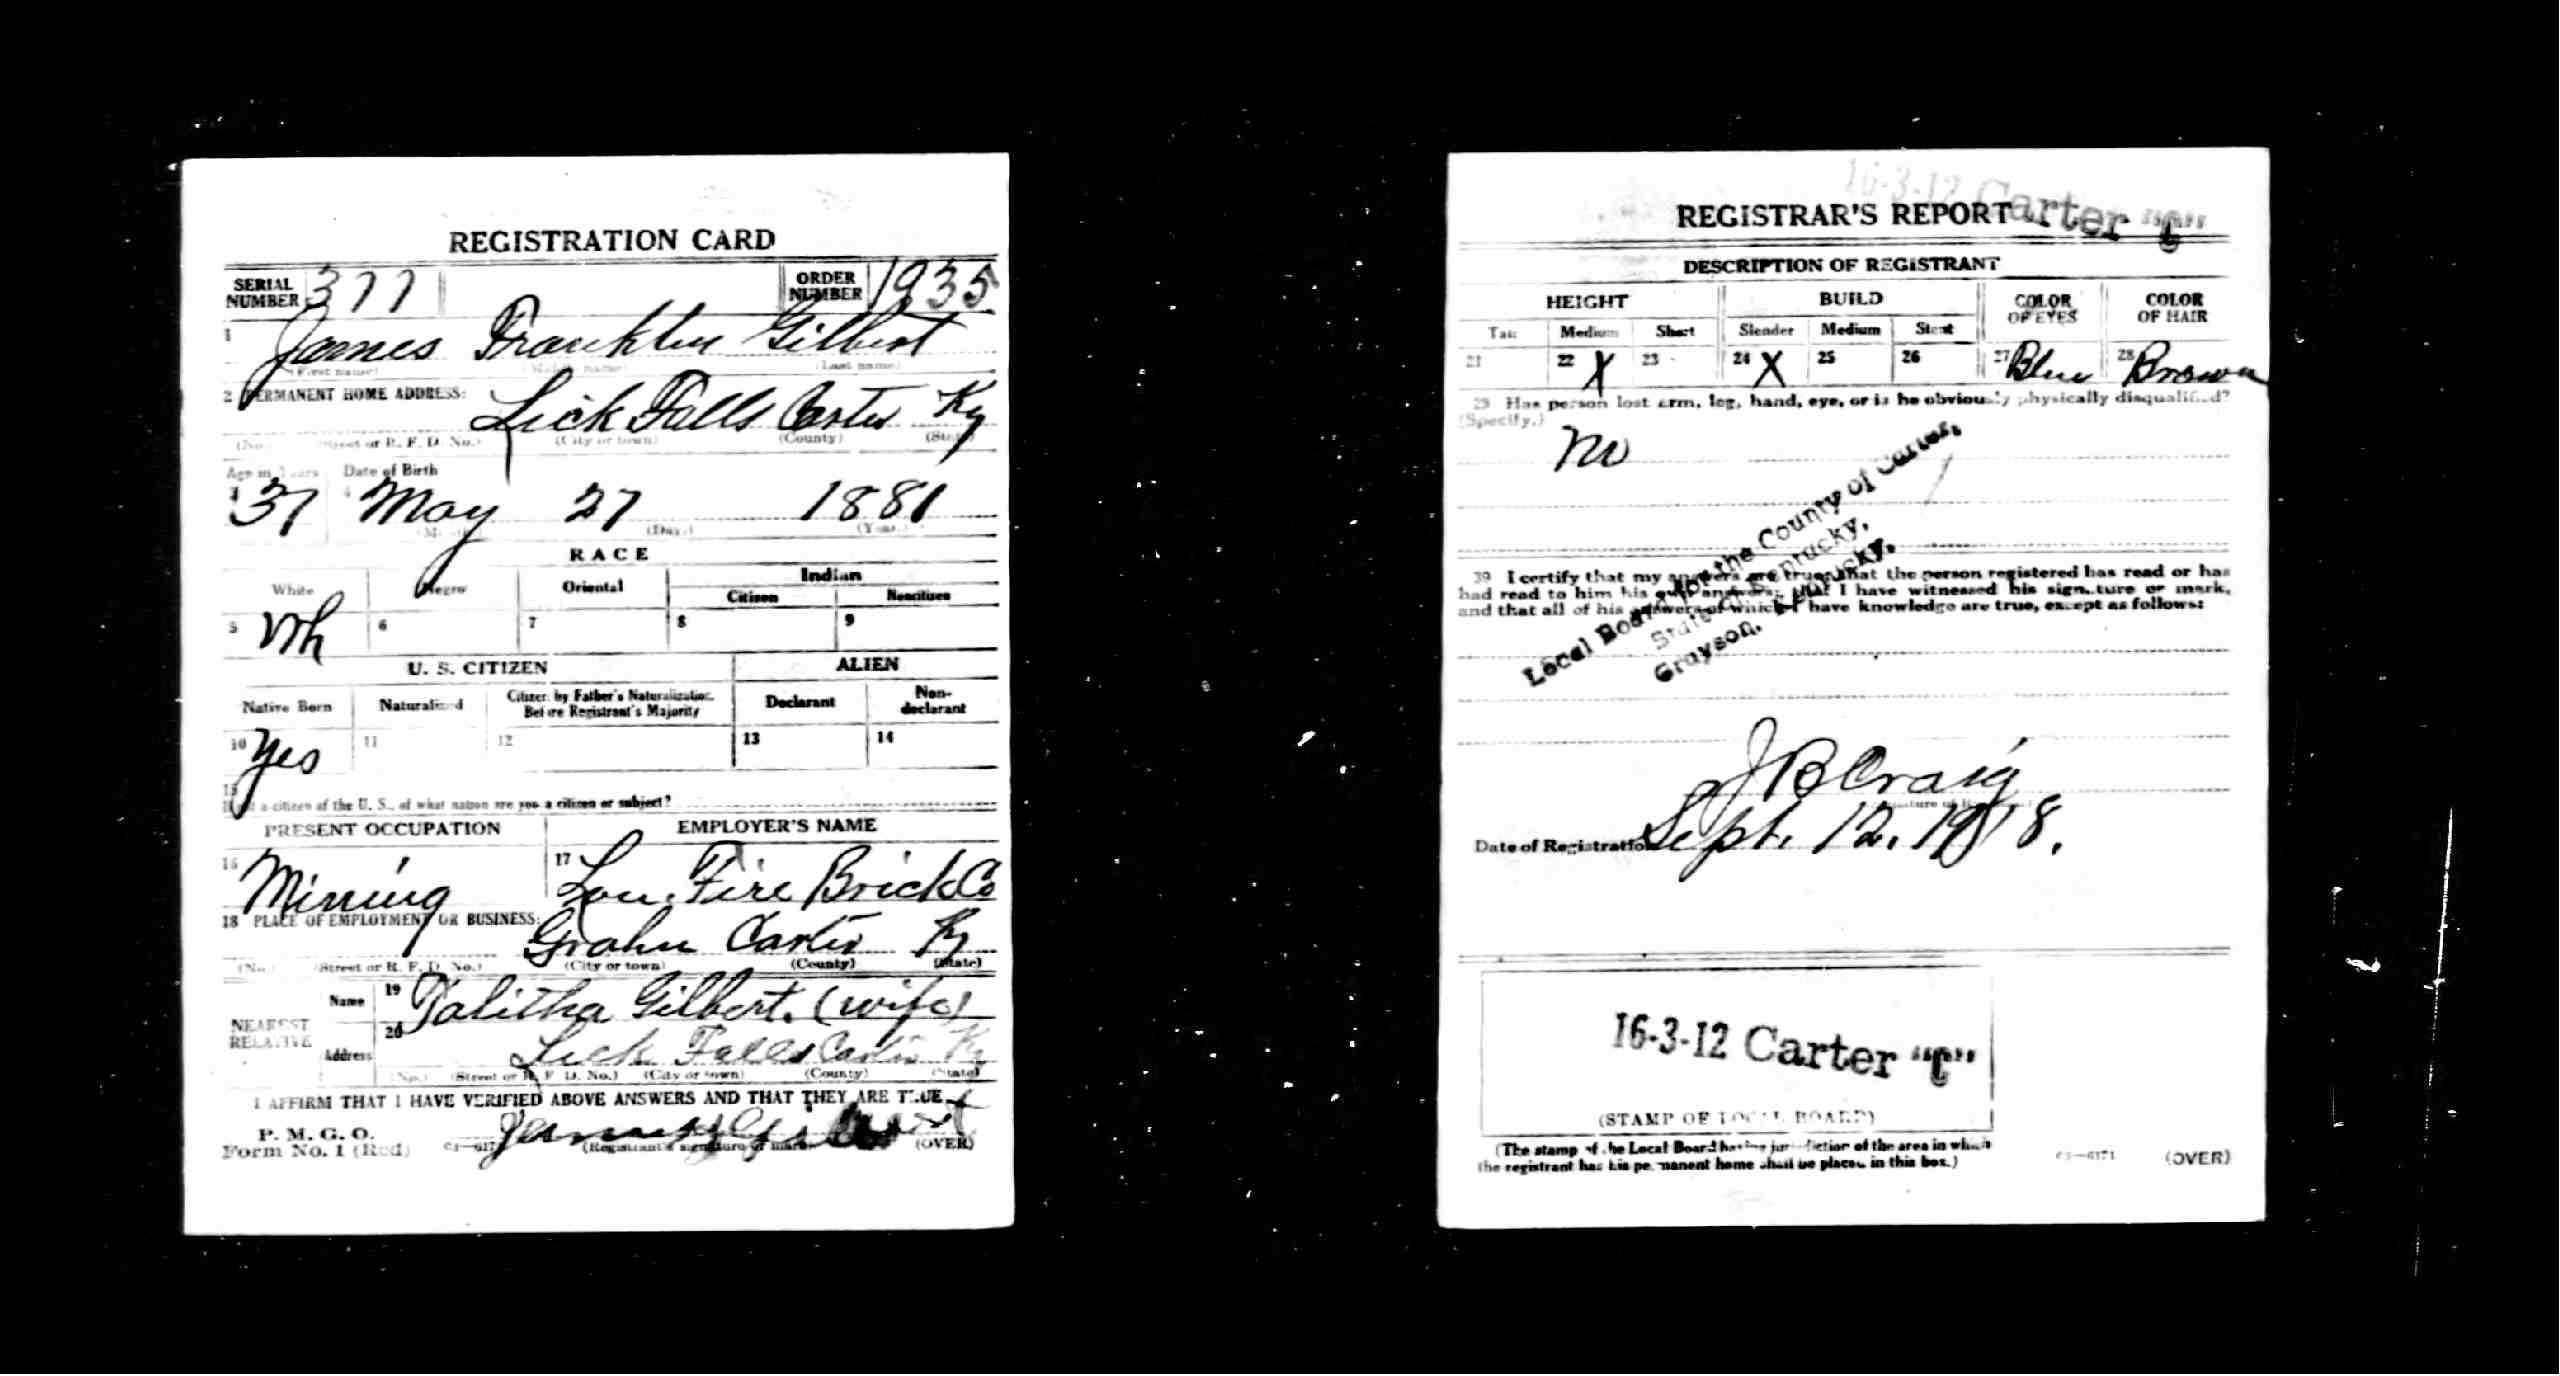 REGISTRATION CARD
SERIAL NUMBER 377 ORDER NUMBER 1935
1 James Franklin Gilbert
(First name) (Middle name) (Last name)
2 PERMANENT HOME ADDRESS:
Lick Falls Carter Ky
(No.) (Street or R. F. D. No.) (City or town) (County) (State)
Age in Years Date of Birth
3 37 4 May 27 1881
(Month) (Day) (Year)
RACE
White Negro Oriental Indian
Citizen Noncitizen
5 Wh 6 7 8 9
U. S. CITIZEN ALIEN
Native Born Naturalized Citizen by Father's Naturalization Before Registrant's Majority Declarant Non-declarant
10 Yes 11 12 13 14
15
If not a citizen of the U. S., of what nation are you a citizen or subject?
PRESENT OCCUPATION EMPLOYER'S NAME
16 Mining 17 Lou. Fire Brick Co
18 PLACE OF EMPLOYMENT OR BUSINESS:
Grahn Carter Ky
(No.) (Street or R. F. D. No.) (City or town) (County) (State)
NEAREST RELATIVE Name 19 Talitha Gilbert. (wife)
Address 20 Lick Falls Carter Ky
(No.) (Street or R. F. D. No.) (City or town) (County) (State)
I AFFIRM THAT I HAVE VERIFIED ABOVE ANSWERS AND THAT THEY ARE TRUE
P. M. G. O.
Form No. 1 (Red) (Registrant's signature or mark) (OVER)
16-3-12 Carter "C"
REGISTRAR'S REPORT
DESCRIPTION OF REGISTRANT
HEIGHT BUILD COLOR OF EYES COLOR OF HAIR
Tall Medium Short Slender Medium Stout
21 22 X 23 24 X 25 26 27 Blue 28 Brown
29 Has person lost arm, leg, hand, eye, or is he obviously physically disqualified?
(Specify.)
No
Local Board for the County of Carter,
State of Kentucky,
Grayson, Kentucky.
30 I certify that my answers are true; that the person registered has read or has
had read to him his own answers; that I have witnessed his signature or mark,
and that all of his answers of which I have knowledge are true, except as follows:
J B Craig
Date of Registration Sept. 12. 1918.
16-3-12 Carter "C"
(STAMP OF LOCAL BOARD)
(The stamp of the Local Board having jurisdiction of the area in which
the registrant has his permanent home shall be placed in this box.)
C3—6171 (OVER)